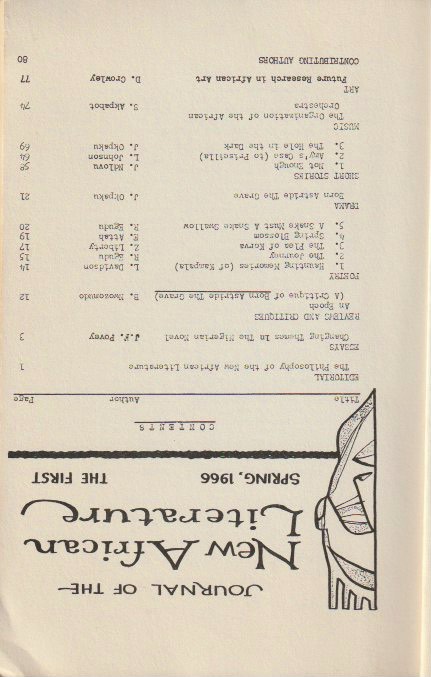 JOURNAL OF THE—
New African
Literature
SPRING, 1966 THE FIRST
CONTENTS
Title Author Page
EDITORIAL
The Philosophy of the New African Literature 1
ESSAYS
Changing Themes in The Nigerian Novel J.F. Povey 3
REVIEWS AND CRITIQUES
An Epoch
(A Critique of Born Astride The Grave) B. 12
POETRY
1. Haunting Memories (of Kampala) L. Davidson 14
2. The Journey R. Egudu 15
3. The Plea of Korva Z. Liberty 17
4. Spring Blossom E. Attah 19
5. A Snake Must A Snake Swallow R. Egudu 20
DRAMA
Born Astride The Grave J. Okpaku 21
SHORT STORIES
1. Not Enough J. Ndlovu 58
2. Amy's Case (to Priscilla) L. Johnson 64
3. The Hole in the Dark J. Okpaku 69
MUSIC
The Organization of the African
Orchestra S. Akpabot 74
ART
Future Research in African Art D. Crowley 77
CONTRIBUTING AUTHORS 80